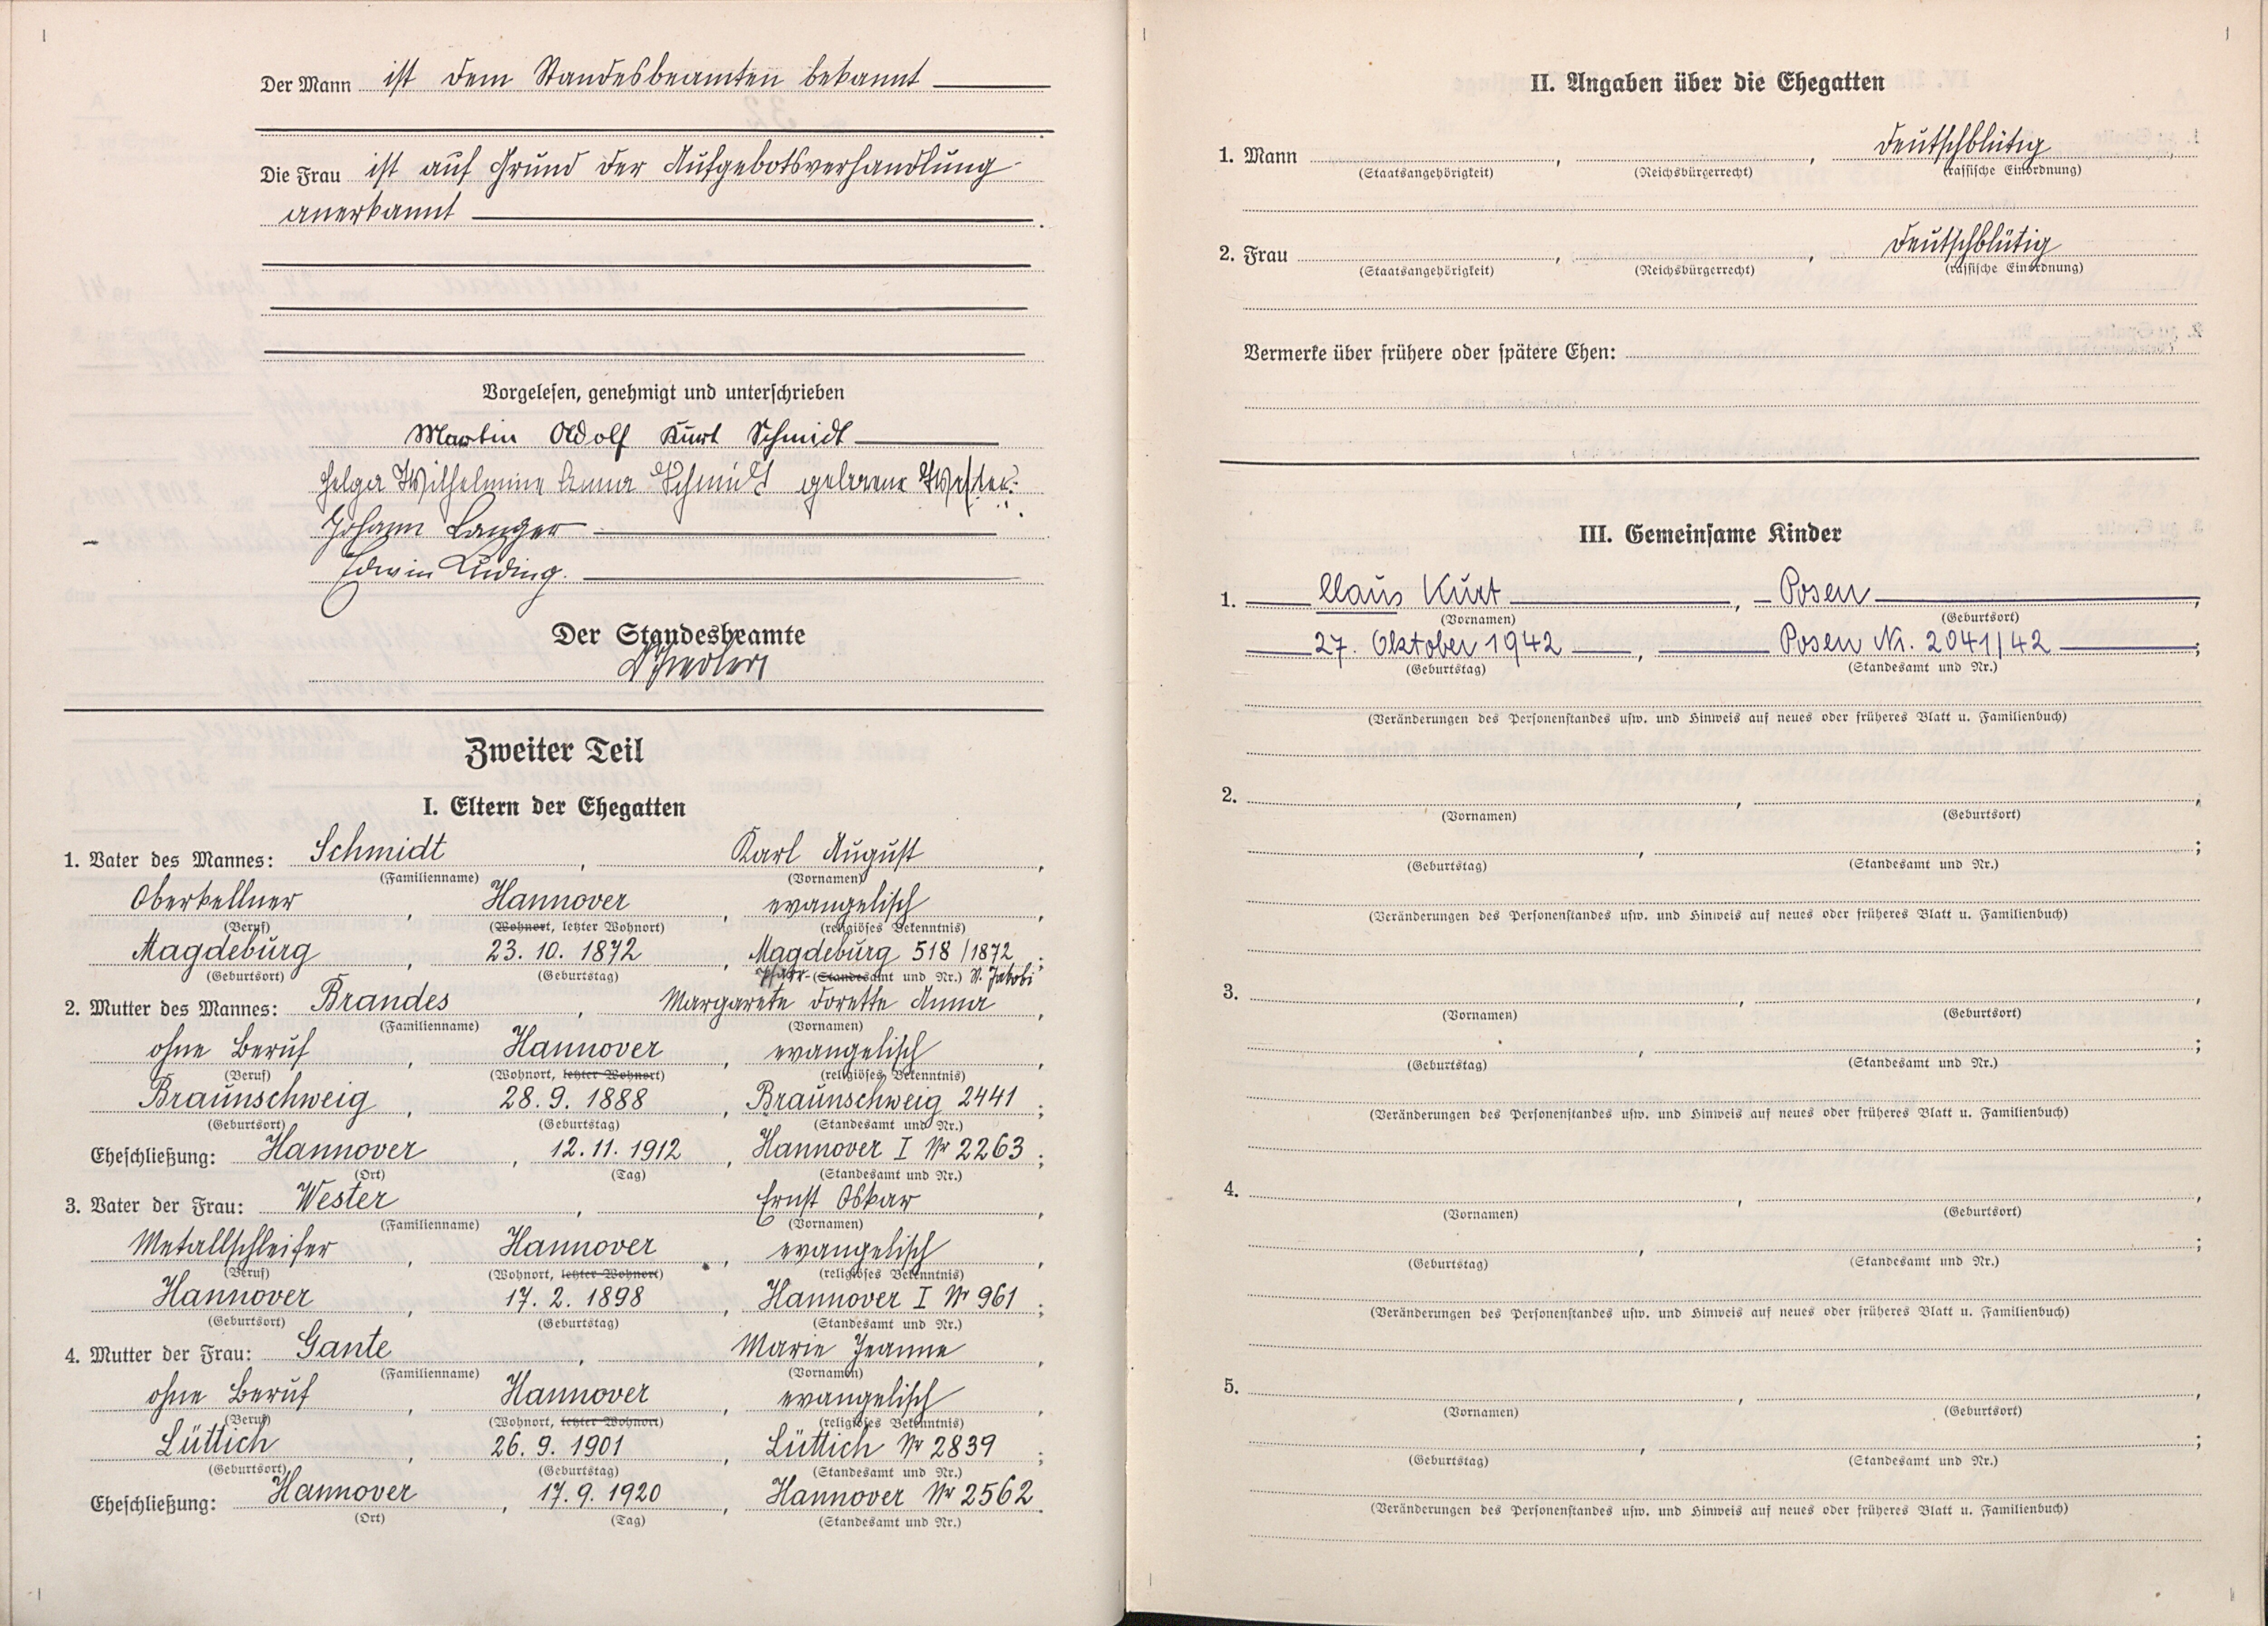 Der Mann ist dem Standesbeamten bekannt
Die Frau ist auf Grund der Aufgebotsverhandlung
anerkannt
Vorgelesen, genehmigt und unterschrieben
Martin Adolf Kurt Schmidt
Helga Wilhelmine Anna Schmidt geborene Wester.
Johann Langer
Edwin Luding.
Der Standesbeamte
Zweiter Teil
I. Eltern der Ehegatten
1. Vater des Mannes: Schmidt, Karl August,
(Familienname) (Vornamen)
Oberkellner, Hannover, evangelisch,
(Beruf) (Wohnort, letzter Wohnort) (religiöses Bekenntnis)
Magdeburg, 23. 10. 1872, Magdeburg 518/1872;
(Geburtsort) (Geburtstag) Pfarr- (Standesamt und Nr.) St. Jakobi
2. Mutter des Mannes: Brandes, Margarete Dorette Anna,
(Familienname) (Vornamen)
ohne Beruf, Hannover, evangelisch,
(Beruf) (Wohnort, letzter Wohnort) (religiöses Bekenntnis)
Braunschweig, 28. 9. 1888, Braunschweig 2441;
(Geburtsort) (Geburtstag) (Standesamt und Nr.)
Eheschließung: Hannover, 12. 11. 1912, Hannover I Nr 2263;
(Ort) (Tag) (Standesamt und Nr.)
3. Vater der Frau: Wester, Ernst Oskar,
(Familienname) (Vornamen)
Metallschleifer, Hannover, evangelisch,
(Beruf) (Wohnort, letzter Wohnort) (religiöses Bekenntnis)
Hannover, 17. 2. 1898, Hannover I Nr 961;
(Geburtsort) (Geburtstag) (Standesamt und Nr.)
4. Mutter der Frau: Gante, Marie Jeanne,
(Familienname) (Vornamen)
ohne Beruf, Hannover, evangelisch,
(Beruf) (Wohnort, letzter Wohnort) (religiöses Bekenntnis)
Lüttich, 26. 9. 1901, Lüttich Nr 2839;
(Geburtsort) (Geburtstag) (Standesamt und Nr.)
Eheschließung: Hannover, 17. 9. 1920, Hannover Nr 2562.
(Ort) (Tag) (Standesamt und Nr.)
II. Angaben über die Ehegatten
1. Mann , , deutschblütig
(Staatsangehörigkeit) (Reichsbürgerrecht) (rassische Einordnung)
2. Frau , , deutschblütig
(Staatsangehörigkeit) (Reichsbürgerrecht) (rassische Einordnung)
Vermerke über frühere oder spätere Ehen:
III. Gemeinsame Kinder
1. Claus Kurt, Posen,
(Vornamen) (Geburtsort)
27. Oktober 1942, Posen Nr. 2041/42;
(Geburtstag) (Standesamt und Nr.)
(Veränderungen des Personenstandes usw. und Hinweis auf neues oder früheres Blatt u. Familienbuch)
2. , ,
(Vornamen) (Geburtsort)
, ;
(Geburtstag) (Standesamt und Nr.)
(Veränderungen des Personenstandes usw. und Hinweis auf neues oder früheres Blatt u. Familienbuch)
3. , ,
(Vornamen) (Geburtsort)
, ;
(Geburtstag) (Standesamt und Nr.)
(Veränderungen des Personenstandes usw. und Hinweis auf neues oder früheres Blatt u. Familienbuch)
4. , ,
(Vornamen) (Geburtsort)
, ;
(Geburtstag) (Standesamt und Nr.)
(Veränderungen des Personenstandes usw. und Hinweis auf neues oder früheres Blatt u. Familienbuch)
5. , ,
(Vornamen) (Geburtsort)
, ;
(Geburtstag) (Standesamt und Nr.)
(Veränderungen des Personenstandes usw. und Hinweis auf neues oder früheres Blatt u. Familienbuch)